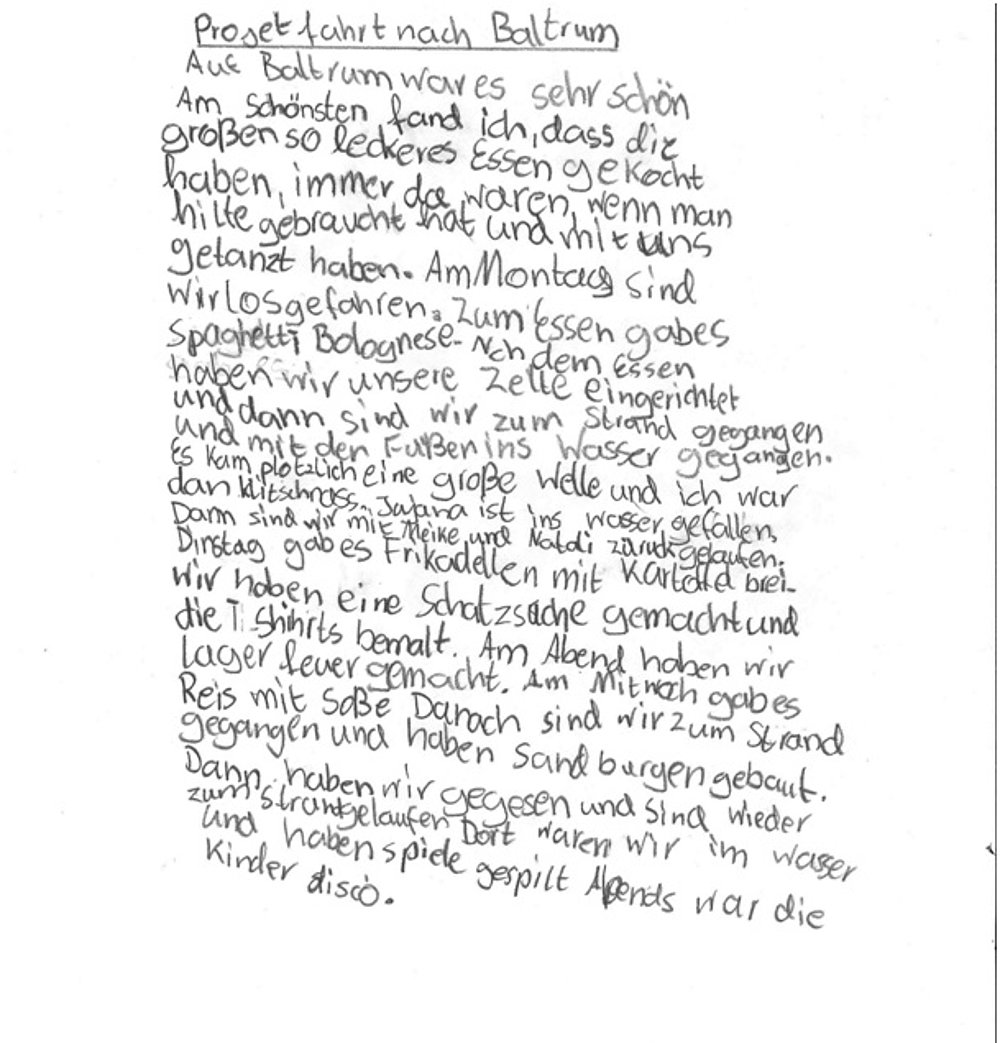 Projetfahrt nach Baltrum
Auf Baltrum war es sehr schön
Am schönsten fand ich, dass die
großen so leckeres Essen gekocht
haben, immer da waren, wenn man
hilfe gebraucht hat und mit uns
getanzt haben. Am Montag sind
wir losgefahren. Zum Essen gab es
Spaghetti Bolognese. Nch dem Essen
haben wir unsere Zelte eingerichtet
und dann sind wir zum Strand gegangen
und mit den Fußen ins Wasser gegangen.
Es kam plötzlich eine große Welle und ich war
dan klitschnass. ist ins wasser gefallen,
Dann sind wir mit Meike und Natdi zürük gelaufen.
Dinstag gab es Frikadellen mit Kartoffel brei.
Wir haben eine Schatzsuche gemacht und
die T Shihrts bemalt. Am Abend haben wir
lager feuer gemacht. Am Mitwoch gab es
Reis mit Soße Danach sind wir zum Strand
gegangen und haben Sand burgen gebaut.
Dann haben wir gegesen und sind wieder
zum strant gelaufen Dort waren wir im wasser
und haben spiele gespilt Abends war die
Kinder disco.